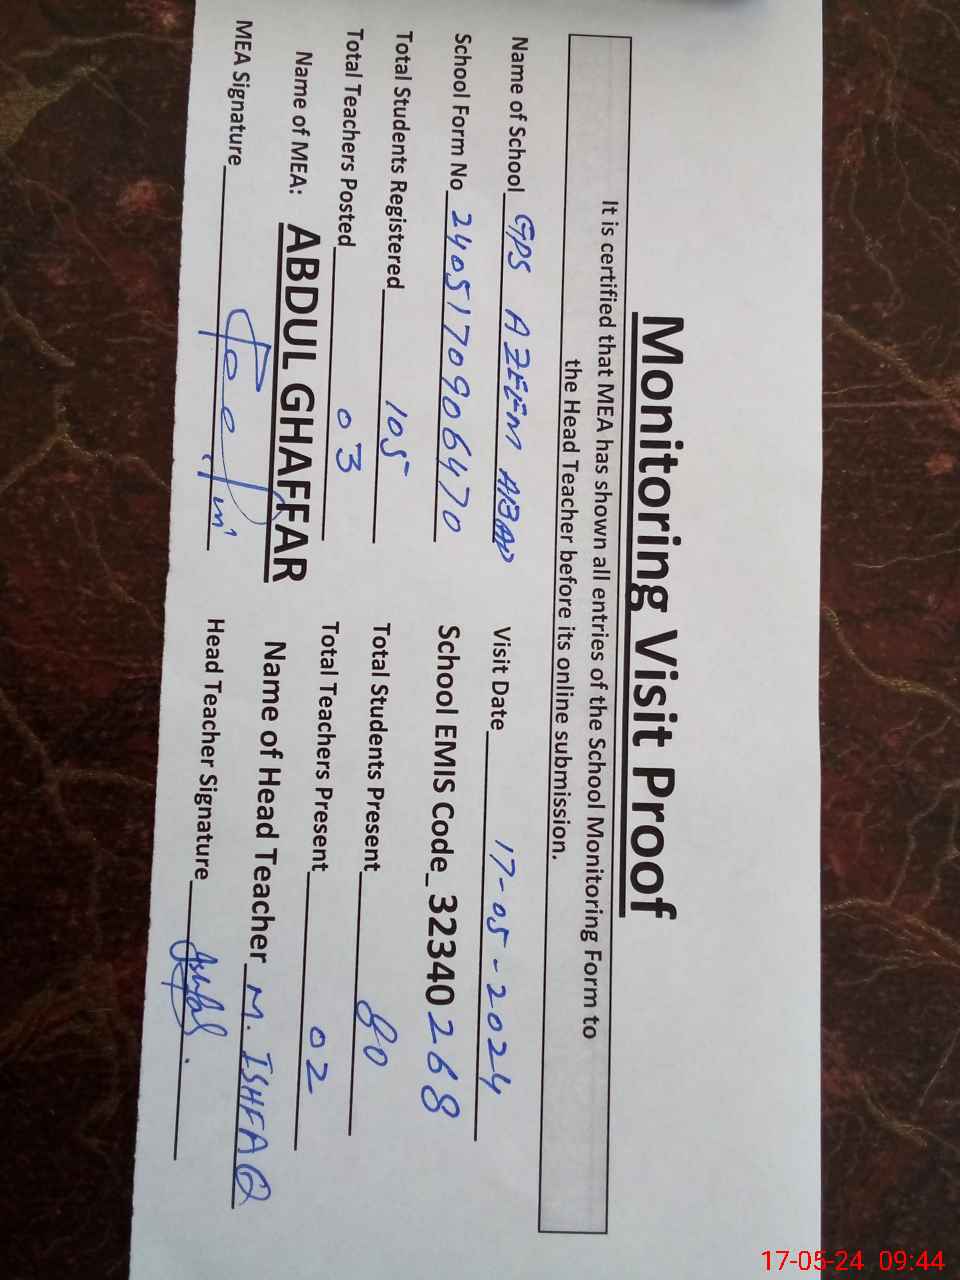 Monitoring Visit Proof
It is certified that MEA has shown all entries of the School Monitoring Form to
the Head Teacher before its online submission.
Name of School GPS AZEEM ABAD Visit Date 17-05-2024
School Form No 2405170906470 School EMIS Code_32340268
Total Students Registered 105 Total Students Present 80
Total Teachers Posted 03 Total Teachers Present 02
Name of MEA: ABDUL GHAFFAR Name of Head Teacher M. ISHFAQ
MEA Signature Head Teacher Signature
17-05-24 09:44